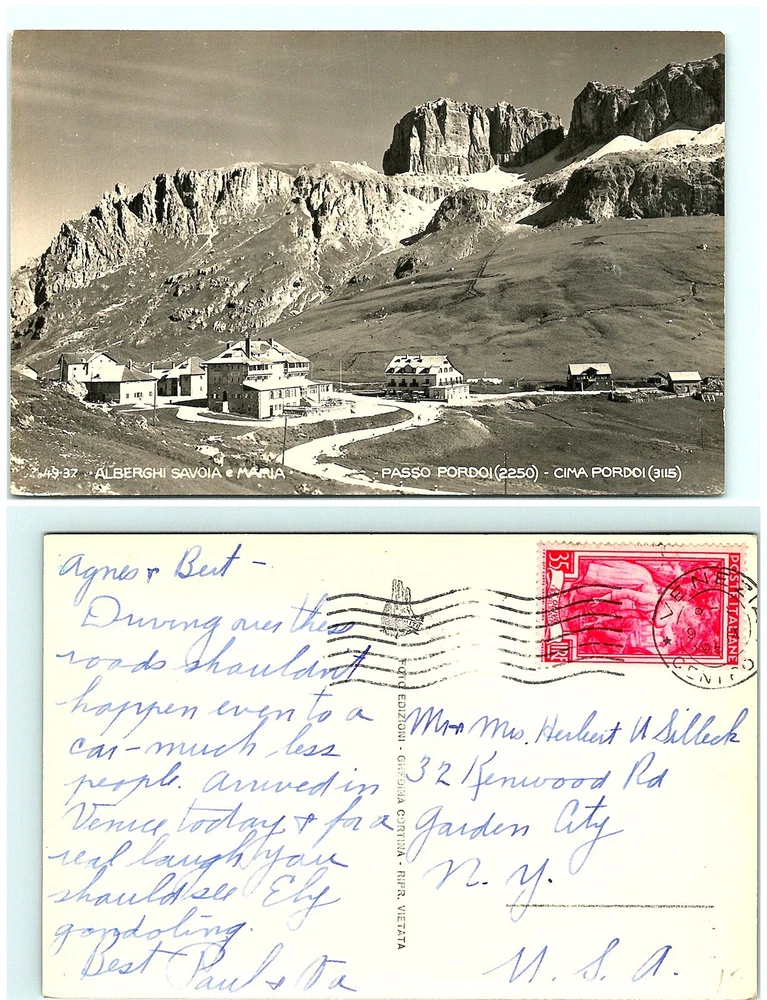 49-37 - ALBERGHI SAVOIA e MARIA - PASSO PORDOI (2250) - CIMA PORDOI (3115)
Agnes & Bert -
Driving over these
roads shouldn't
happen even to a
car - much less
people. Arrived in
Venice today & for a
real laugh you
should see Ely
gondoling.
Best Paul &
FOTO EDIZIONI - GHEDINA CORTINA - RIPR. VIETATA
35
POSTE ITALIANE
LIRE
VENEZIA
CENTRO
Mr & Mrs. Herbert W Silleck
32 Kenwood Rd
Garden City
N. Y.
U. S. A.